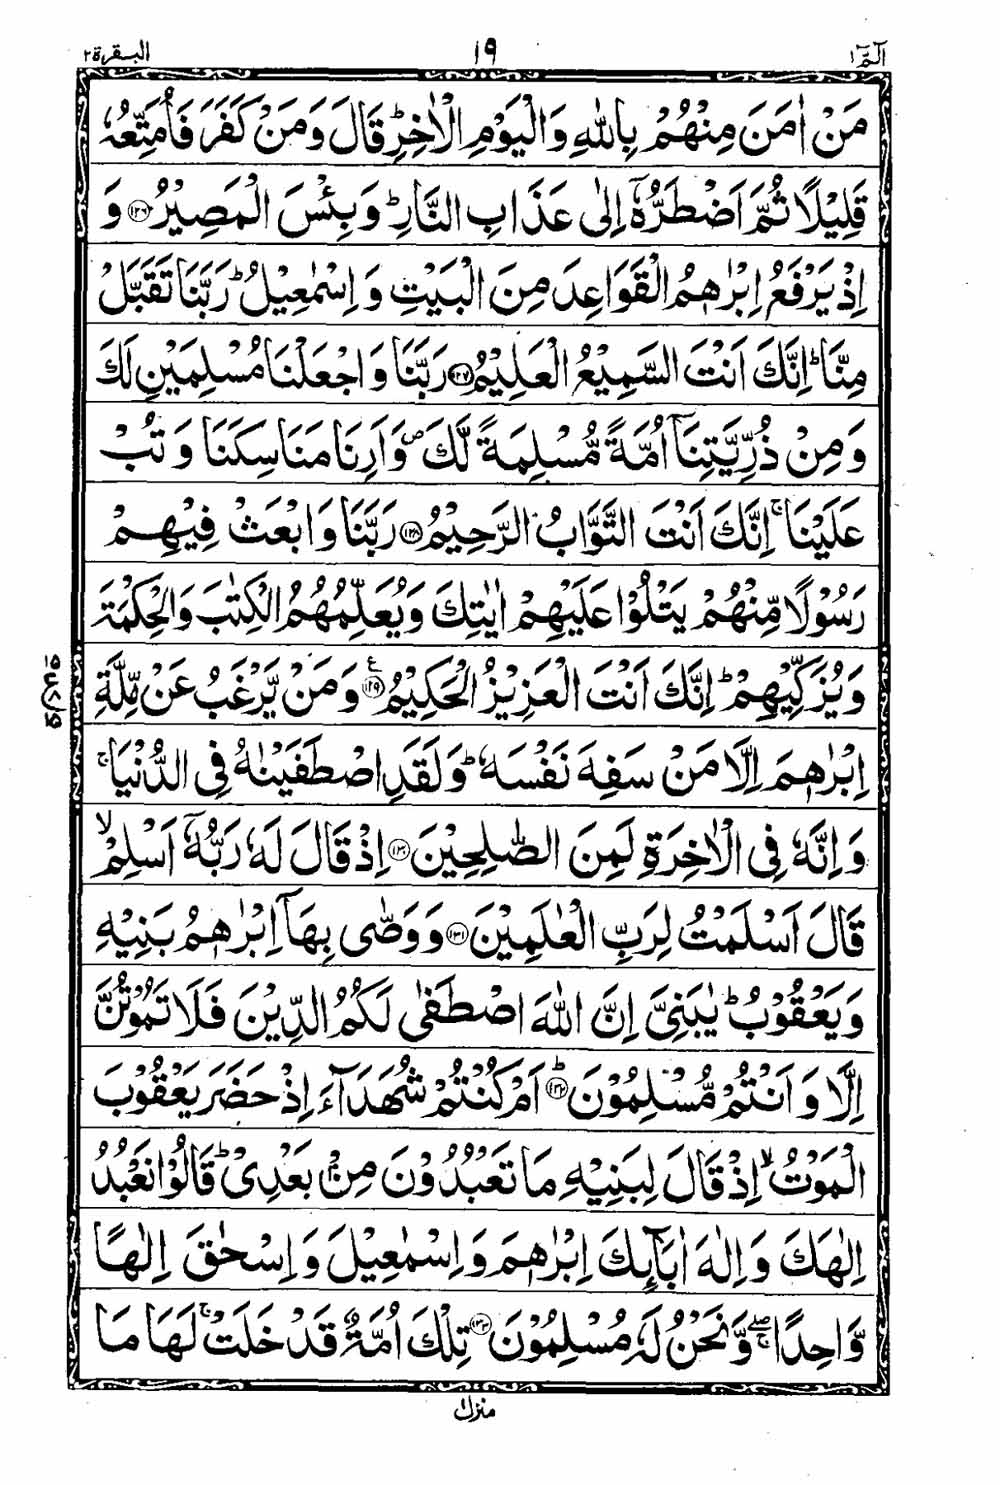 الٓمّٓ ١
١٩
البقرة ٢
مَنْ اٰمَنَ مِنْهُمْ بِاللّٰهِ وَالْيَوْمِ الْاٰخِرِ ؕ قَالَ وَمَنْ كَفَرَ فَاُمَتِّعُهٗ
قَلِيْلًا ثُمَّ اَضْطَرُّهٗۤ اِلٰى عَذَابِ النَّارِ ؕ وَبِئْسَ الْمَصِيْرُ ﴿۱۲۶﴾ وَ
اِذْ يَرْفَعُ اِبْرٰهٖمُ الْقَوَاعِدَ مِنَ الْبَيْتِ وَاِسْمٰعِيْلُ ؕ رَبَّنَا تَقَبَّلْ
مِنَّا ؕ اِنَّكَ اَنْتَ السَّمِيْعُ الْعَلِيْمُ ﴿۱۲۷﴾ رَبَّنَا وَاجْعَلْنَا مُسْلِمَيْنِ لَكَ
وَمِنْ ذُرِّيَّتِنَاۤ اُمَّةً مُّسْلِمَةً لَّكَ ۪ وَاَرِنَا مَنَاسِكَنَا وَتُبْ
عَلَيْنَا ۚ اِنَّكَ اَنْتَ التَّوَّابُ الرَّحِيْمُ ﴿۱۲۸﴾ رَبَّنَا وَابْعَثْ فِيْهِمْ
رَسُوْلًا مِّنْهُمْ يَتْلُوْا عَلَيْهِمْ اٰيٰتِكَ وَيُعَلِّمُهُمُ الْكِتٰبَ وَالْحِكْمَةَ
وَيُزَكِّيْهِمْ ؕ اِنَّكَ اَنْتَ الْعَزِيْزُ الْحَكِيْمُ ﴿۱۲۹﴾ ع وَمَنْ يَّرْغَبُ عَنْ مِّلَّةِ
اِبْرٰهٖمَ اِلَّا مَنْ سَفِهَ نَفْسَهٗ ؕ وَلَقَدِ اصْطَفَيْنٰهُ فِى الدُّنْيَا ۚ
وَاِنَّهٗ فِى الْاٰخِرَةِ لَمِنَ الصّٰلِحِيْنَ ﴿۱۳۰﴾ اِذْ قَالَ لَهٗ رَبُّهٗۤ اَسْلِمْ ۙ
قَالَ اَسْلَمْتُ لِرَبِّ الْعٰلَمِيْنَ ﴿۱۳۱﴾ وَوَصّٰى بِهَاۤ اِبْرٰهٖمُ بَنِيْهِ
وَيَعْقُوْبُ ؕ يٰبَنِىَّ اِنَّ اللّٰهَ اصْطَفٰى لَكُمُ الدِّيْنَ فَلَا تَمُوْتُنَّ
اِلَّا وَاَنْتُمْ مُّسْلِمُوْنَ ﴿۱۳۲﴾ ؕ اَمْ كُنْتُمْ شُهَدَآءَ اِذْ حَضَرَ يَعْقُوْبَ
الْمَوْتُ ۙ اِذْ قَالَ لِبَنِيْهِ مَا تَعْبُدُوْنَ مِنْۢ بَعْدِىْ ؕ قَالُوْا نَعْبُدُ
اِلٰهَكَ وَاِلٰهَ اٰبَآئِكَ اِبْرٰهٖمَ وَاِسْمٰعِيْلَ وَاِسْحٰقَ اِلٰهًا
وَّاحِدًا ۖۚ وَّنَحْنُ لَهٗ مُسْلِمُوْنَ ﴿۱۳۳﴾ تِلْكَ اُمَّةٌ قَدْ خَلَتْ ۚ لَهَا مَا
منزل